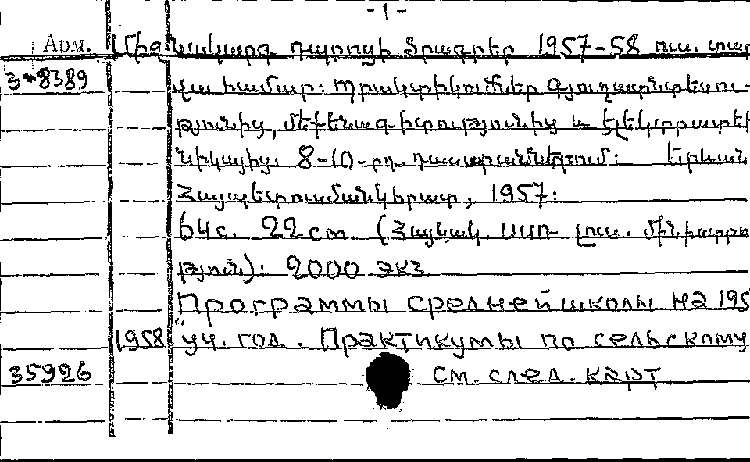 - 1 -
Арм. Միջնակարգ դպրոցի ծրագրեր 1957-58 ուս. տար
3*8389 վա համար: Պրակտիկումներ գյուղատնտեսու-
թյունից, մեքենագիտությունից և էլեկտրատեխ
նիկայից 8-10-րդ դասարաններում: Երևան
Հայպետուսմանկհրատ, 1957:
64с. 22 см. (Հայկակ. ՍՍՌ լուս. մինիստրու
թյուն): 2000 экз.
Программы средней школы на 195
1958 уч. год. Практикумы по сельскому
35926 см. след. карт